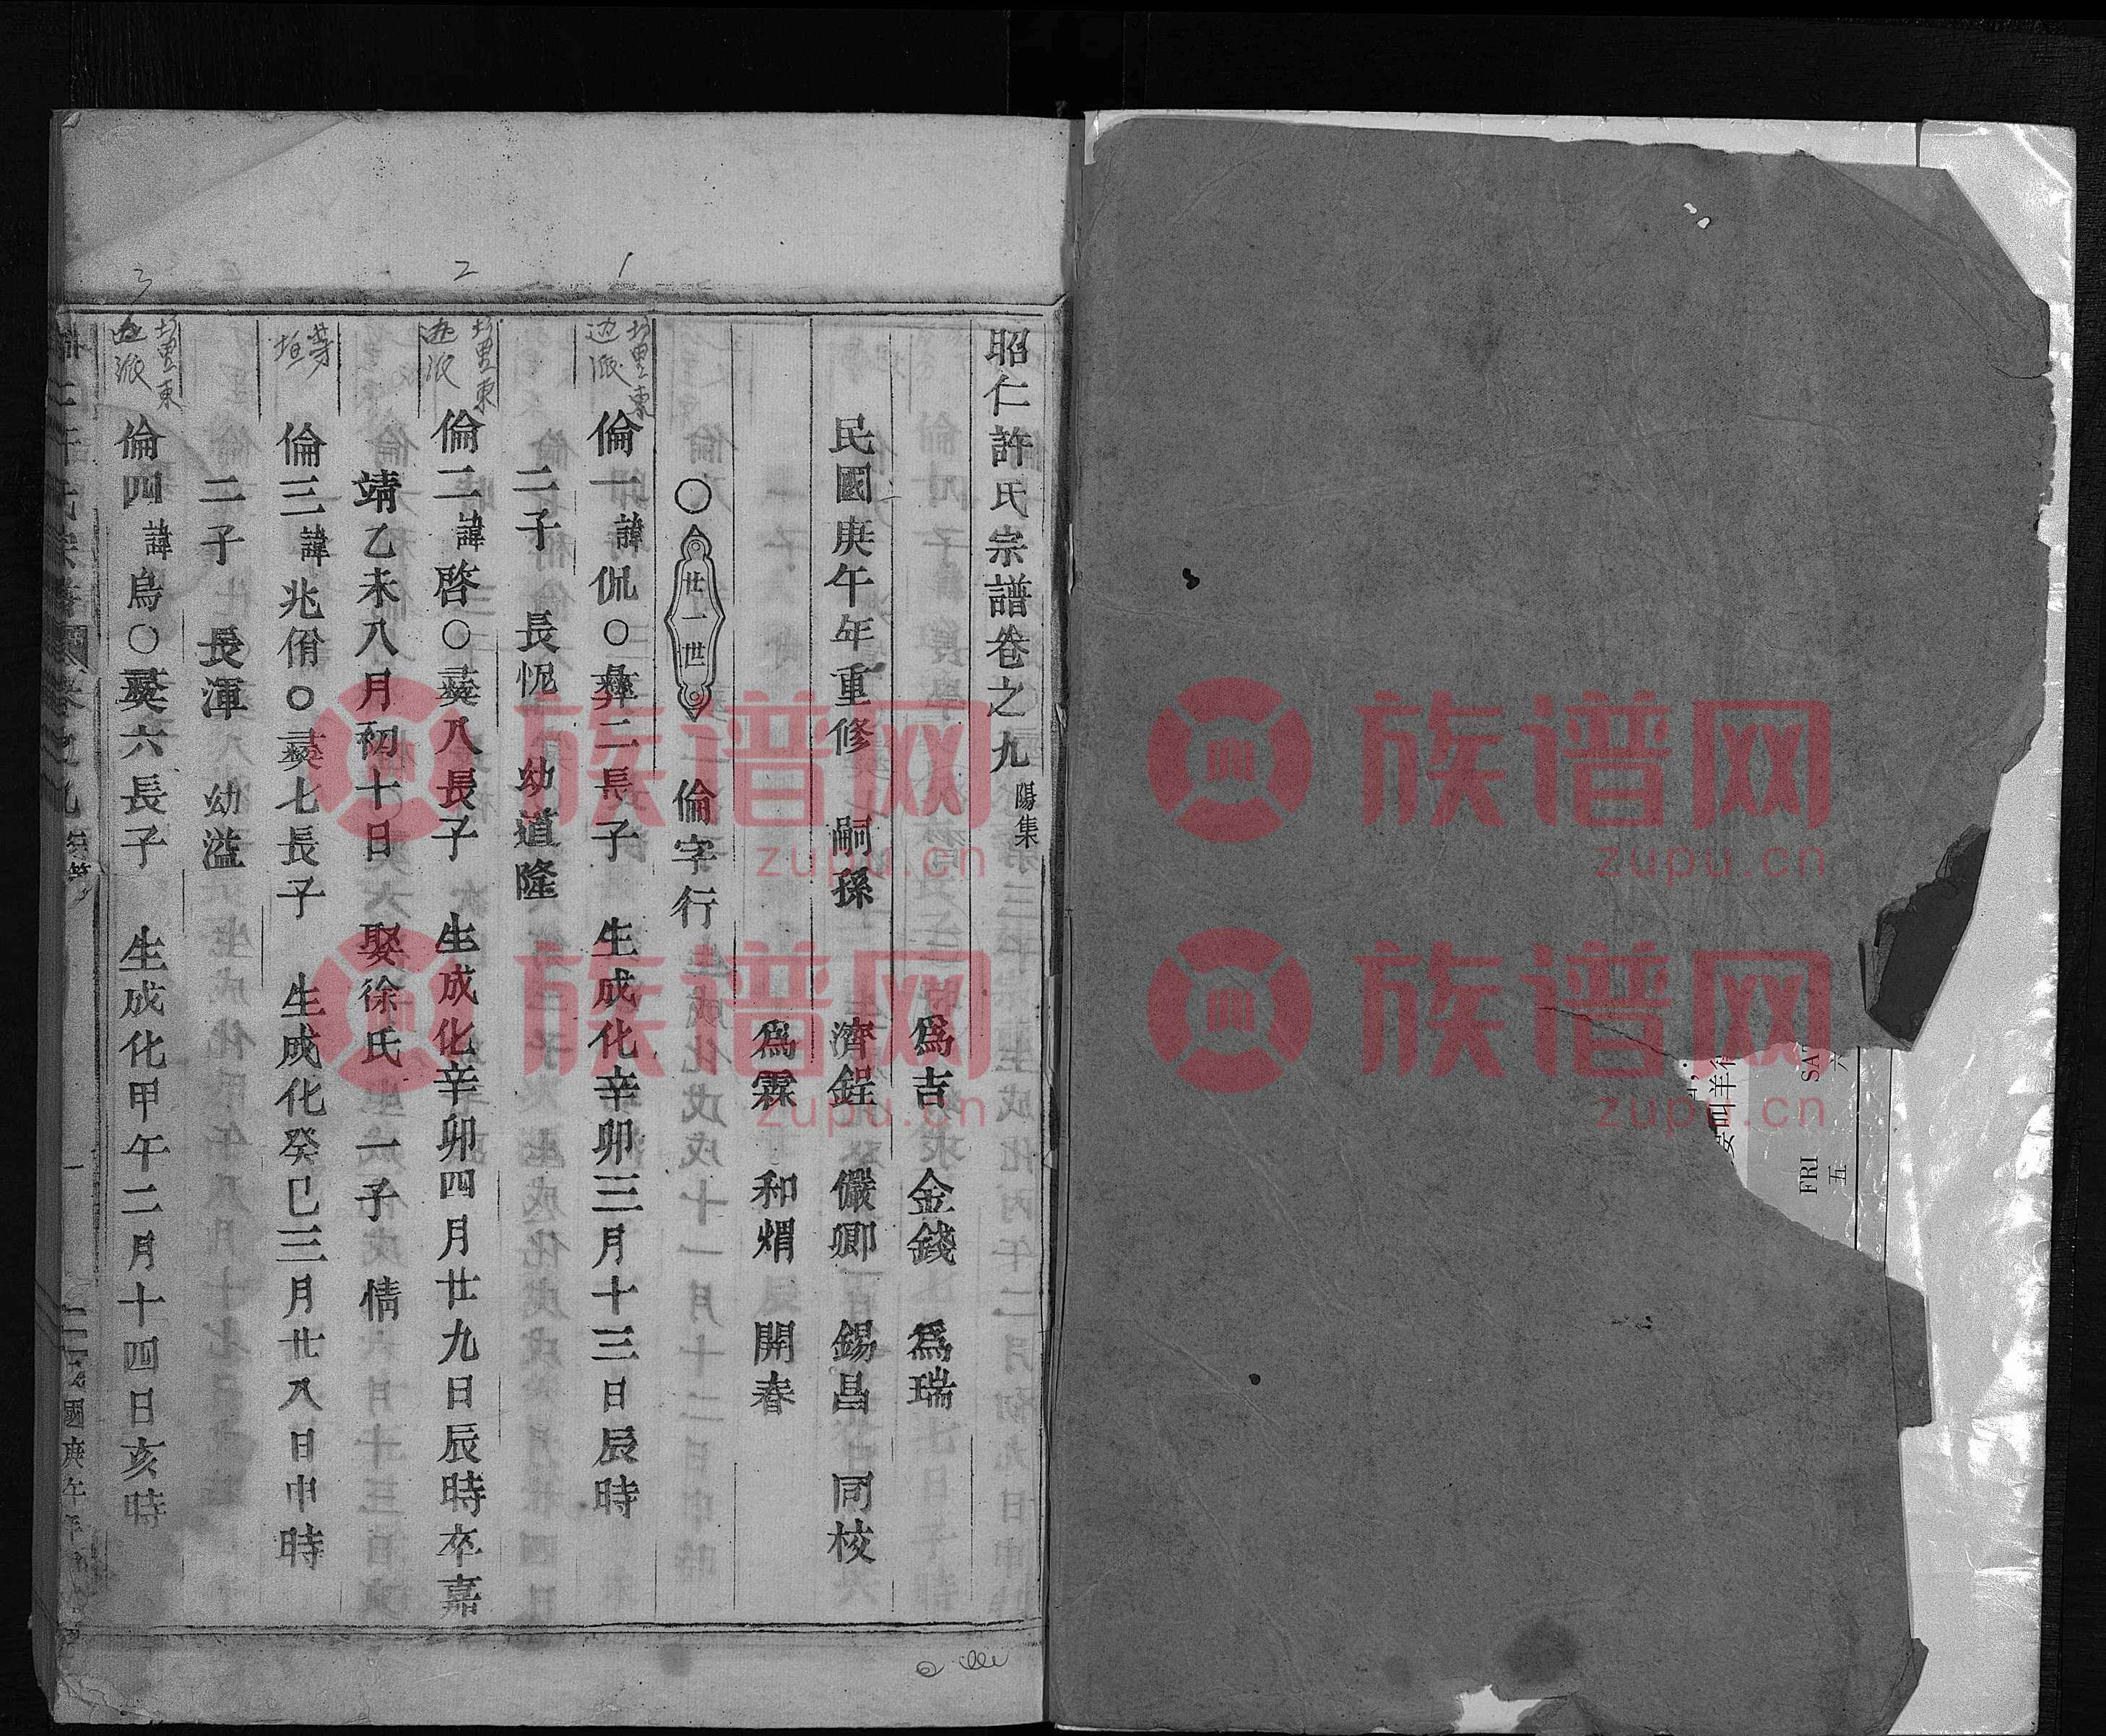 昭仁許氏宗譜卷之九 陽集
為吉 金錢 為瑞
民國庚午年重修 嗣孫 濟鋥 儼卿 錫昌 同校
為霖 和熠 開春
○ 廿一世 倫字行
1
東边派
倫一 諱侃○彝二長子 生成化辛卯三月十三日辰時
二子 長怩 幼道隆
2
東边派
倫二 諱啓○彝八長子 生成化辛卯四月廿九日辰時卒嘉
靖乙未八月初十日 娶徐氏 一子 情
倫三 諱兆佾○彝七長子 生成化癸巳三月廿八日申時
二子 長渾 幼溢
3
東边派
倫四 諱烏○彝六長子 生成化甲午二月十四日亥時
國庚午年
族谱网
zupu.cn
族谱网
zupu.cn
族谱网
zupu.cn
族谱网
zupu.cn
FRI
五
六